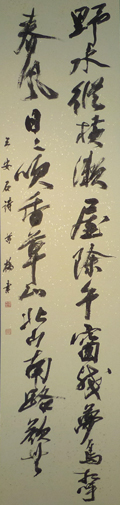 野水縱橫漱屋除午窗残夢鳥相呼
春風日々吹香草山北山南路欲無
王安石詩 書